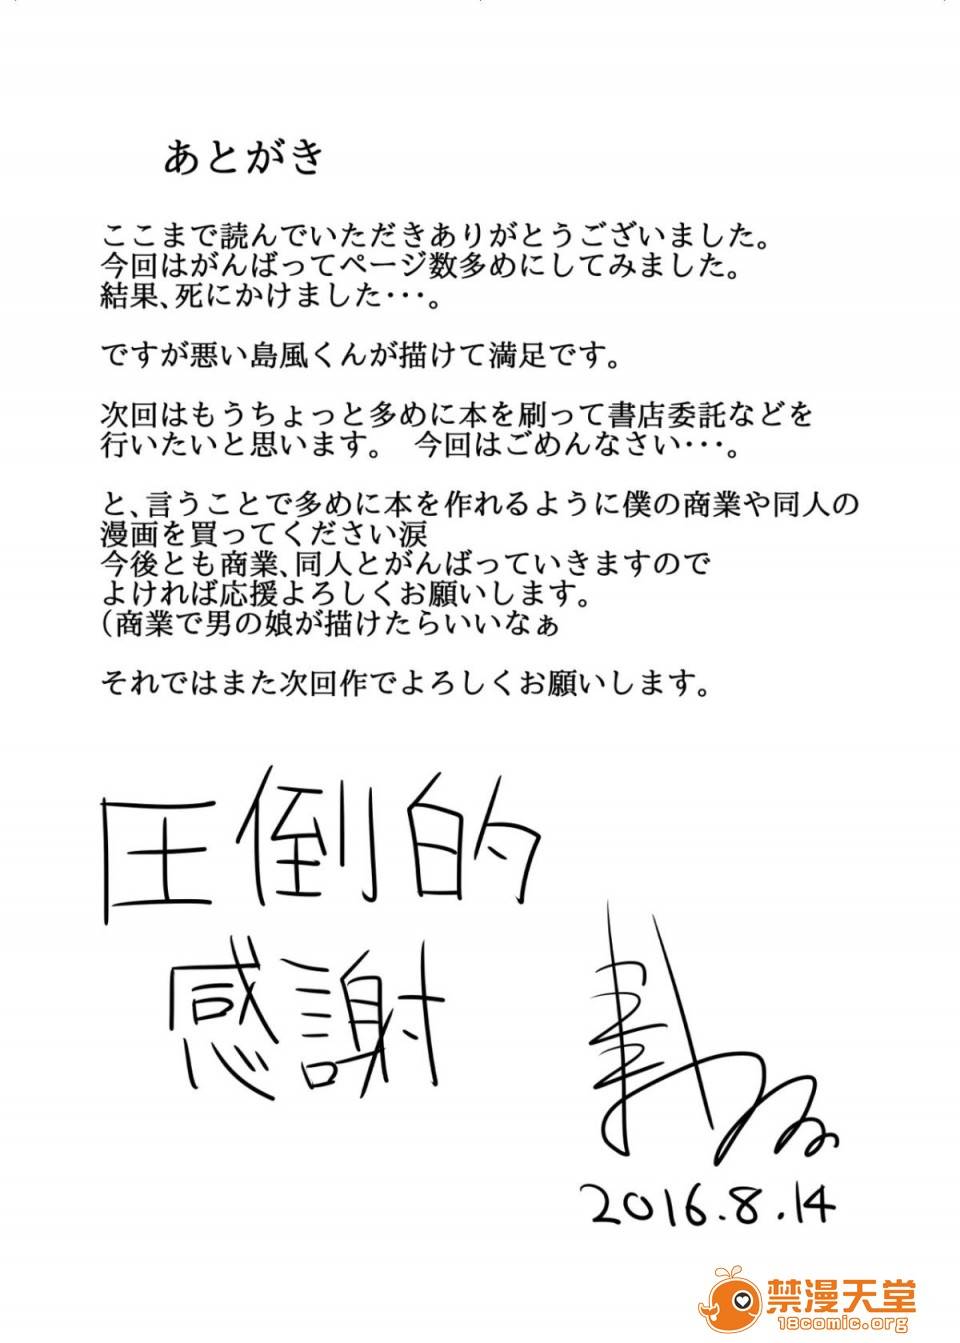 あとがき
ここまで読んでいただきありがとうございました。
今回はがんばってページ数多めにしてみました。
結果、死にかけました・・・。
ですが悪い島風くんが描けて満足です。
次回はもうちょっと多めに本を刷って書店委託などを
行いたいと思います。　今回はごめんなさい・・・。
と、言うことで多めに本を作れるように僕の商業や同人の
漫画を買ってください涙
今後とも商業、同人とがんばっていきますので
よければ応援よろしくお願いします。
（商業で男の娘が描けたらいいなぁ
それではまた次回作でよろしくお願いします。
圧倒的
感謝
2016.8.14
禁漫天堂
18comic.org